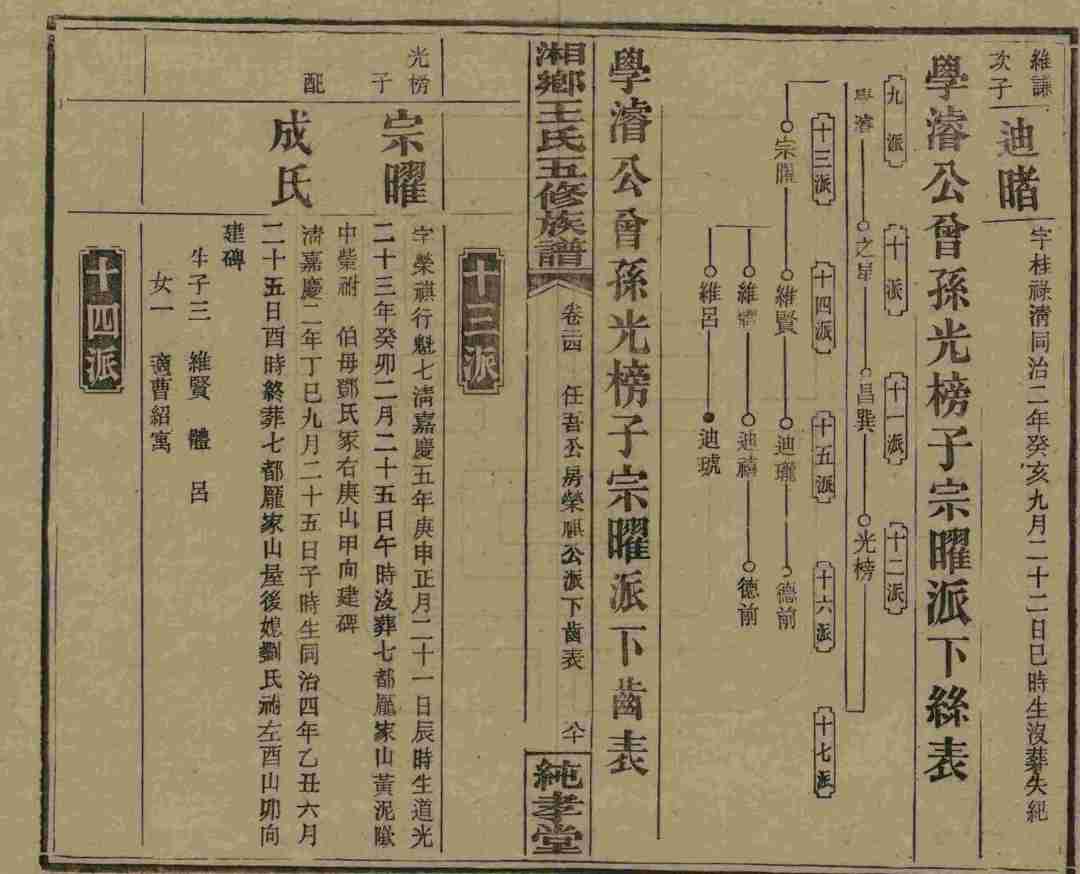 維謙
次子
迪暏
字桂祿淸同治二年癸亥九月二十二日巳時生沒葬失紀
學濬公曾孫光榜子宗曜派下絲表
九派
十派
十一派
十二派
學濬
之星
昌巽
光榜
十三派
十四派
十五派
十六派
十七派
宗曜
維賢
迪瓏
德前
維體
迪禧
德前
維呂
迪琥
學濬公曾孫光榜子宗曜派下齒表
湘鄉王氏五修族譜
卷二四
任吾公房榮祺公派下齒表
六十
純孝堂
十三派
光榜
子
宗曜
字榮祺行魁七淸嘉慶五年庚申正月二十一日辰時生道光
二十三年癸卯二月二十五日午時沒葬七都龎家山黃泥墩
中榮祔 伯母鄧氏冢右庚山甲向建碑
配
成氏
淸嘉慶二年丁巳九月二十五日子時生同治四年乙丑六月
二十五日酉時終葬七都龎家山屋後媳劉氏祔左酉山卯向
建碑
生子三 維賢 體 呂
女一 適曹紹寓
十四派